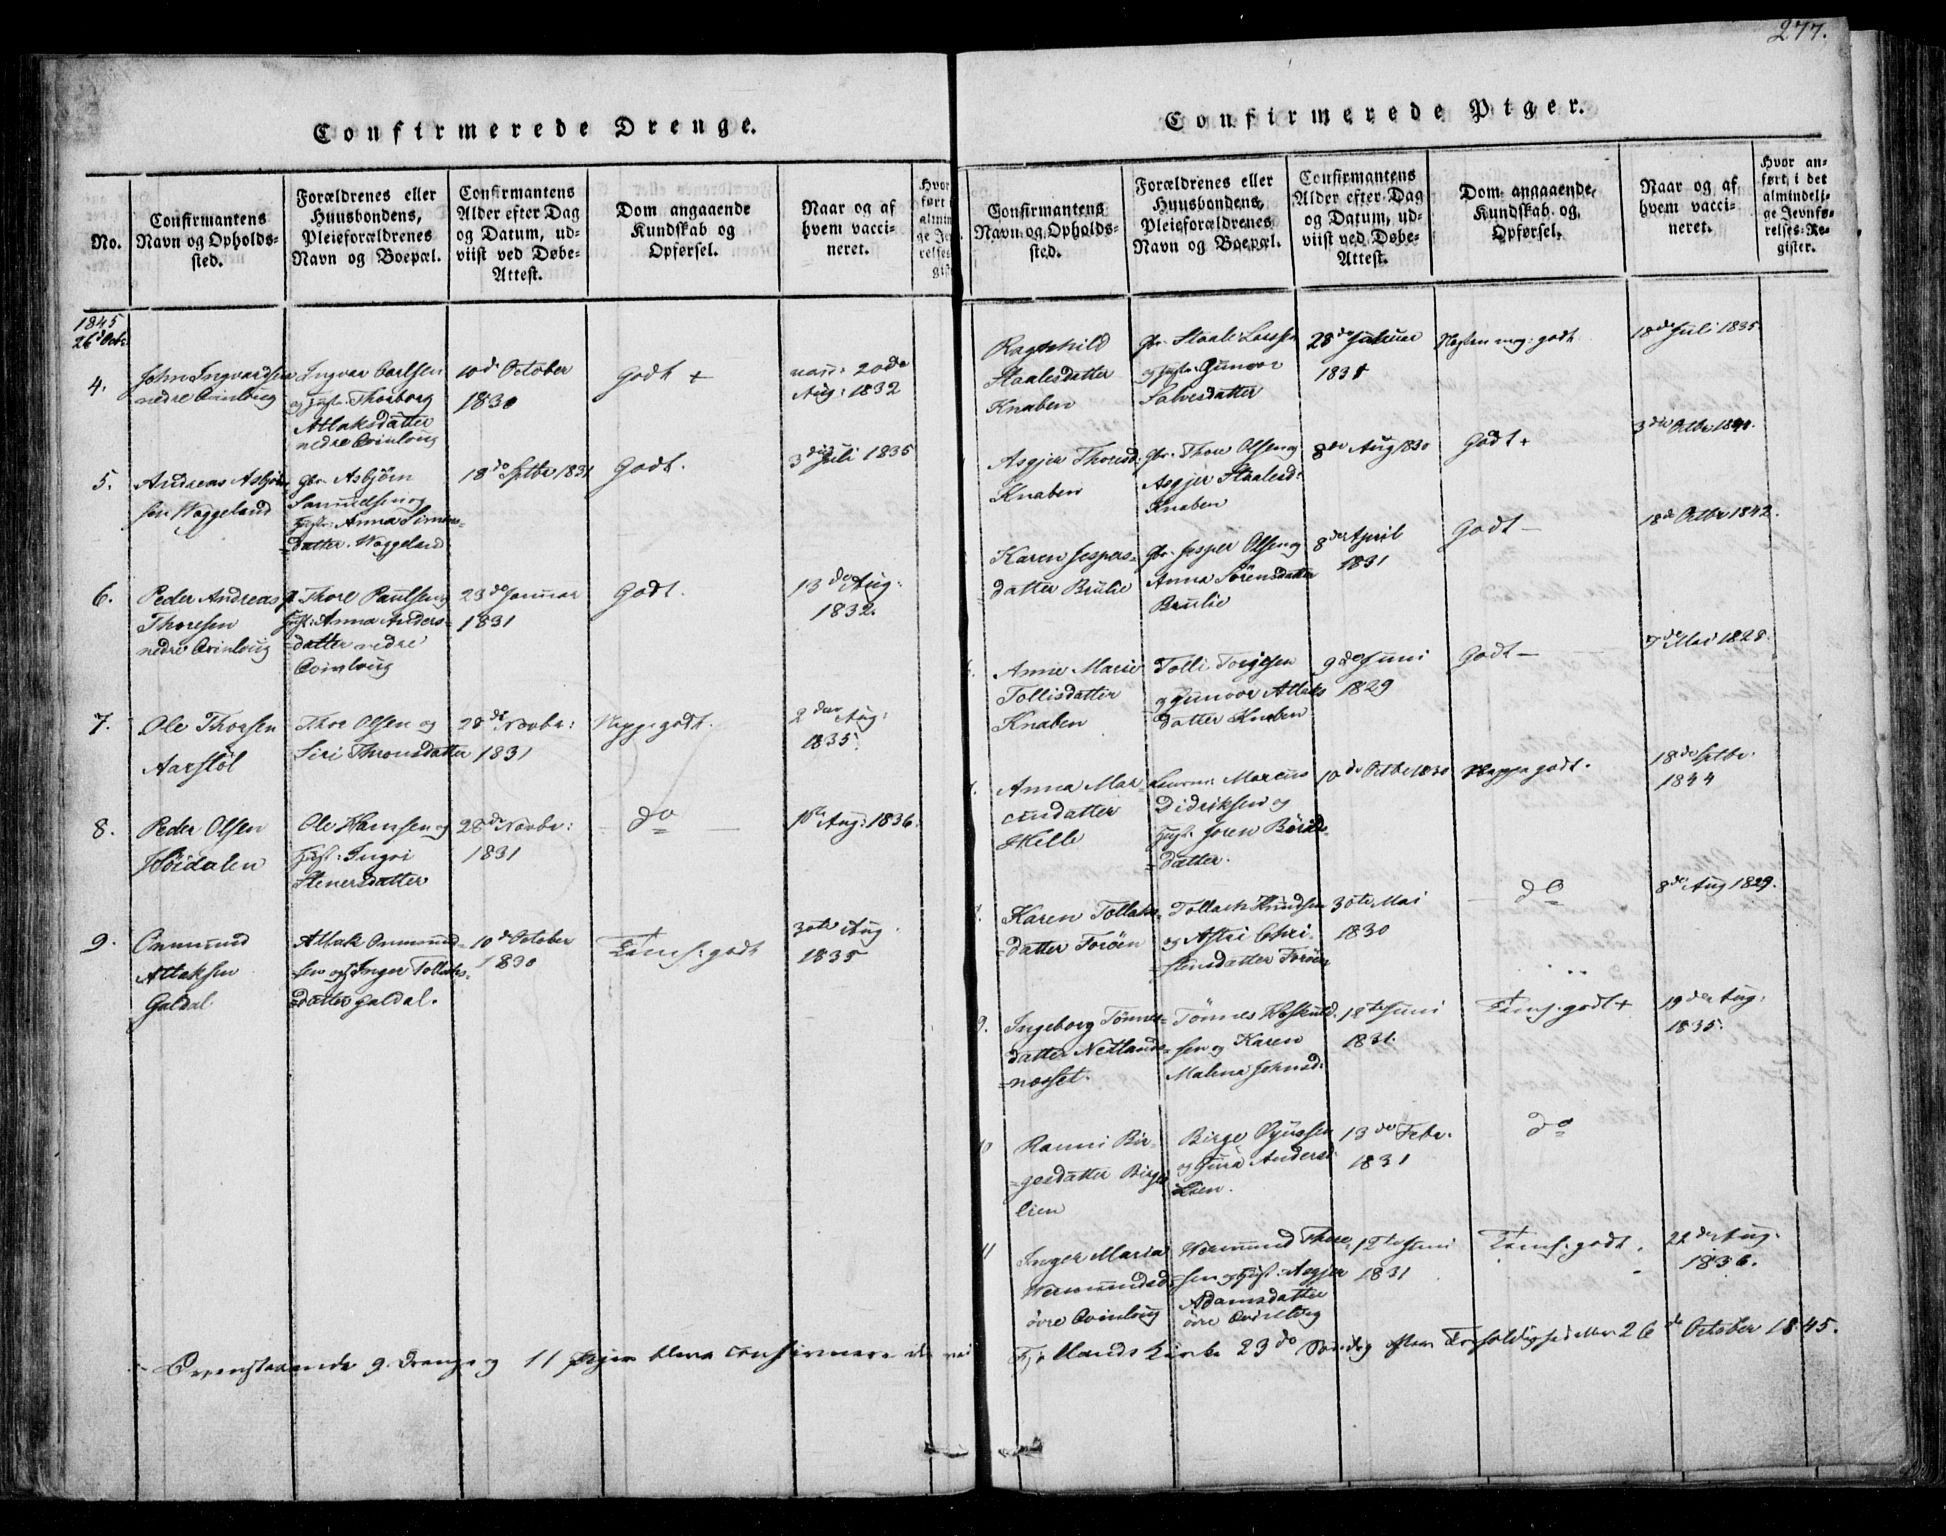 277.
Confirmerede Drenge.
No.
Confirmantens
Navn og Opholds-
sted.
Forældrenes eller
Huusbondens,
Pleieforældrenes
Navn og Boepæl.
Confirmantens
Alder efter Dag
og Datum, ud-
viist ved Døbe-
Attest.
Dom angaaende
Kundskab og
Opførsel.
Naar og af
hvem vacci-
neret.
1845
26 d Octr
4.
John Ingvardsen
nedre Qvinloug
Ingvar Carlsen
og Hust. Thorborg
Atlaksdatter
nedre Qvinloug
10 d October
1830
Godt +
20 de
Aug: 1832
5.
Andreas Asbjørn-
sen Waggeland
Gbr. Asbjørn
Samuelsen og
Hust: Anna Simens-
datter. Waggeland
18 de Sptbr 1831
Godt.
3 die Juli 1835
6.
Peder Andreas
Thoresen
nedre Qvinloug
Thore Paulsen og
Hust: Anna Anders-
datter nedre
Qvinloug
23 de Januar
1831
Godt.
13 de Aug:
1832.
7.
Ole Thorsen
Aarstøl
Thor Olsen og
Siri Thronsdatter
28 de Novbr:
1831
Neppe godt.
2 den Aug:
1835.
8.
Peder Olsen
Høidalen
Ole Hansen og
Hust: Ingri
Stenersdatter
28 de Novbr:
1831
do
Aug: 1836.
9.
Ommund
Atlaksen
Galdal
Atlak Ommund-
sen og Inger Tollaks-
datter Galdal.
10 d October
1830
Temf. godt
30te Aug.
1835
Confirmerede Piger.
Confirmantens
Navn og Opholds-
sted.
Forældrenes eller
Huusbondens,
Pleieforældrenes
Navn og Boepæl.
Confirmantens
Alder efter Dag
og Datum, ud-
viist ved Døbe-
Attest.
Dom angaaende
Kundskab og
Opførsel.
Naar og af
hvem vacci-
neret.
Hvor an-
ført i det
almindeli-
ge Jevnfø-
relses-Re-
gister.
Ragnhild
Staalesdatter
Knaben
Gbr. Staale Larsen
og Hust. Gunvor
Salvesdatter
28 de Januar
1831
Næsten meg: godt
18 d Juli 1835
Asgjer Thoresd:
Knaben
Gbr. Thore Olsen og
Asgjer Staalesd:
Knaben
8 de Aug 1830
Godt +
3 die Octbr 1840.
Karen Jespers-
datter Brulie
Gbr. Jesper Olsen og
Anna Sørensdatter
Brulie
8 de April
1831
Godt —
18 de Octbr 1842.
Anne Marie
Tollisdatter
Knaben
Tolli Torgesen
og Gunvor Atlaks
datter Knaben
9 de Juni
1829
Godt —
7 de Mai 1828.
Anna Mar-
cusdatter
Hille
Marcus
Didriksen og
Hust. Joren Børüls-
datter.
10 de Octbr 1830
Neppe godt.
18 de Sptbr.
1844
Karen Tollaks-
datter Torøen
Tollach Knudsen
og Astri Chri-
stensdatter Torøen
30te Mai
1830
do
8 de Aug 1829.
9.
Ingeborg Tønnes-
datter Netlands-
næsset.
Tønnes Hoskuld-
sen og Karen
Malena Johnsd:
18 de Juni
1831.
Temf. godt +
19 de Aug:
1835.
10
Ranni Bir-
gesdatter Birge
lien
Birge Sjursen
og Gura Andersd:
Lien.
13 de Febr.
1831
do
11
Inger Maria
Wermundsd:
øvre Qvinloug
Wermund Thore-
sen og Hust: Asgjer
Adamsdatter
øvre Qvinloug
12 te Juni
1831
Temf. godt.
22 de Aug.
1836.
Ovenstaaende 9 Drenge og 11 Piger bleve confirmere de ved Fjotlands Kirke 23 de Søndag efter Trefoldighed den 26 de October 1845.